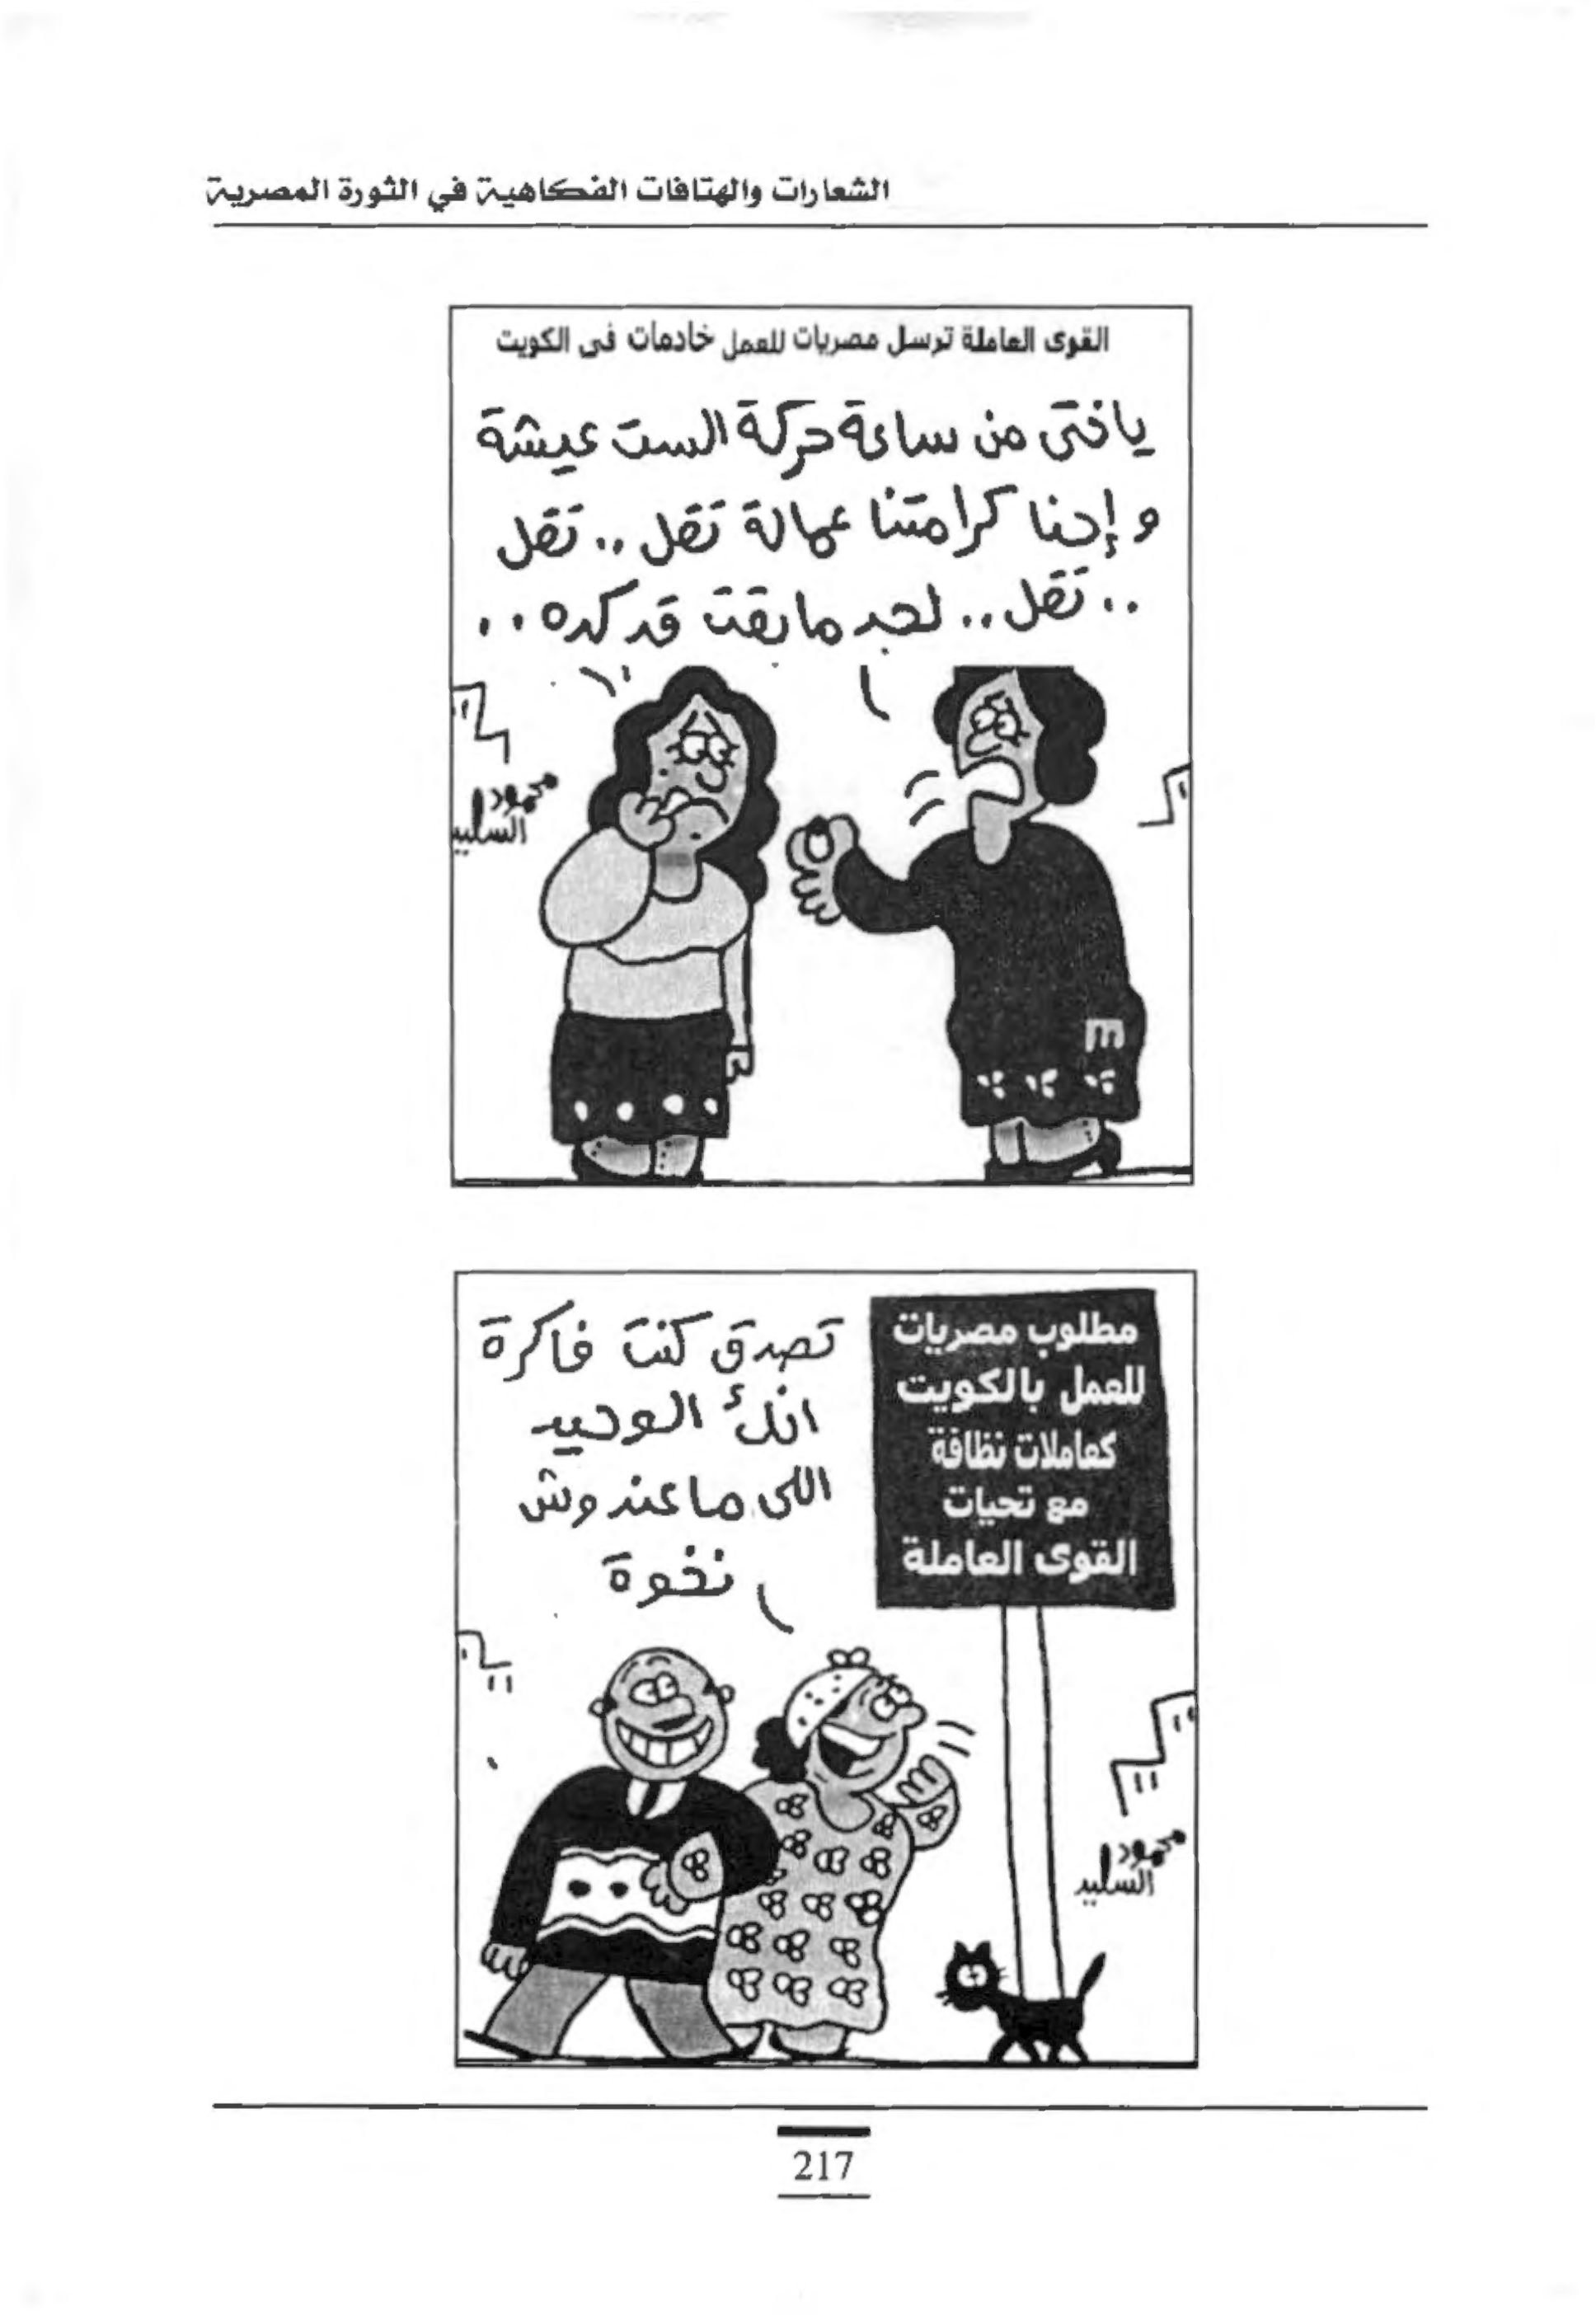 الشعارات والهتافات الفكاهية في الثورة المصرية
القوى العاملة ترسل مصريات للعمل خادمات فى الكويت
ياختى من ساعة حركة الست عيشة
و إحنا كرامتنا عمالة تقل .. تقل
.. تقل .. لحد ما بقت قد كده ..
محمود
السليم
مطلوب مصريات
للعمل بالكويت
كعاملات نظافة
مع تحيات
القوى العاملة
تصدق كنت فاكرة
انك الوحيد
اللى ماعندوش
نخوة
محمود
السليم
217